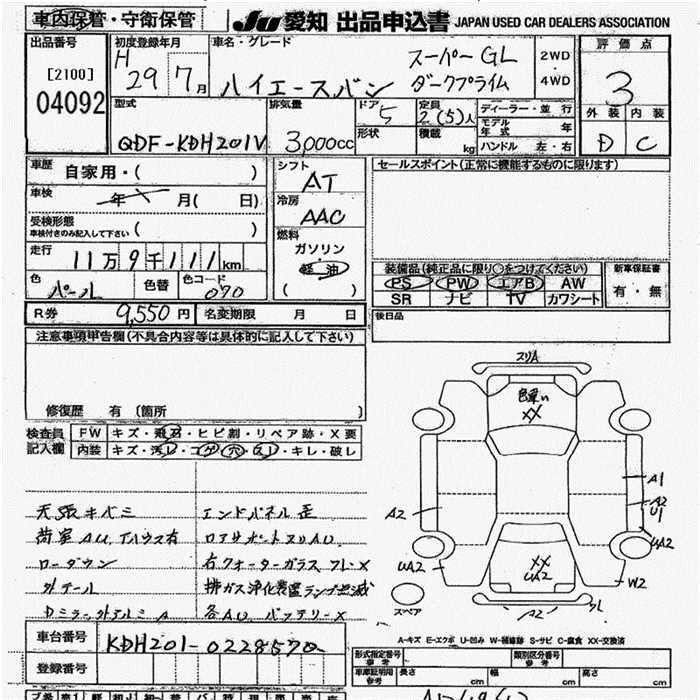 車内保管・守衛保管
JU 愛知 出品申込書 JAPAN USED CAR DEALERS ASSOCIATION
出品番号
[2100]
04092
初度登録年月
H 29年 7月
車名・グレード
ハイエースバン
スーパーGL
ダークプライム
2WD
4WD
評価点
3
外装 内装
D C
型式
QDF-KDH201V
排気量
3,000cc
ドア 5
形状
定員
2(5)人
積載 kg
ディーラー・並行
モデル年式 年
ハンドル 左・右
車歴 自家用・( )
車検 年 月( 日)
受検形態
車検付きのみ記入して下さい ( )
走行 11万9千111km
色 パール
色替
色コード 070
シフト
AT
冷房
AAC
燃料
ガソリン・
軽油
( )
セールスポイント(正常に機能するものに限ります)
装備品(純正品に限り○をつけてください)
PS PW エアB AW
SR ナビ TV カワシート
新車保証書
有・無
R券 9,550円
名変期限 月 日
後日品
注意事項申告欄(不具合内容等は具体的に記入して下さい)
修復歴 有 〔箇所 〕
検査員記入欄
FW キズ・飛石・ヒビ割・リペア跡・X要
内装 キズ・汚レ・コゲ・穴・スレ・キレ・破レ
天張キバミ
荷室AU、Tハウス有
ローダウン
外テール
Dミラー外アルミA
エンドパネル歪
ロアサポートスリAU
右クォーターガラスフレX
排ガス浄化装置ランプ点滅
各AU バッテリーX
スリA
色薄い
XX
A1
A2
U1
UA2
A2
UA2
XX
UA2
W2
A2
スペア
A-キズ E-エクボ U-凹み W-補修跡 S-サビ C-腐食 XX-交換済
車台番号 KDH201-0228570
登録番号
形式指定番号
参考
類別区分番号
参考
車庫証明用
参考
長さ cm
幅 cm
高さ cm